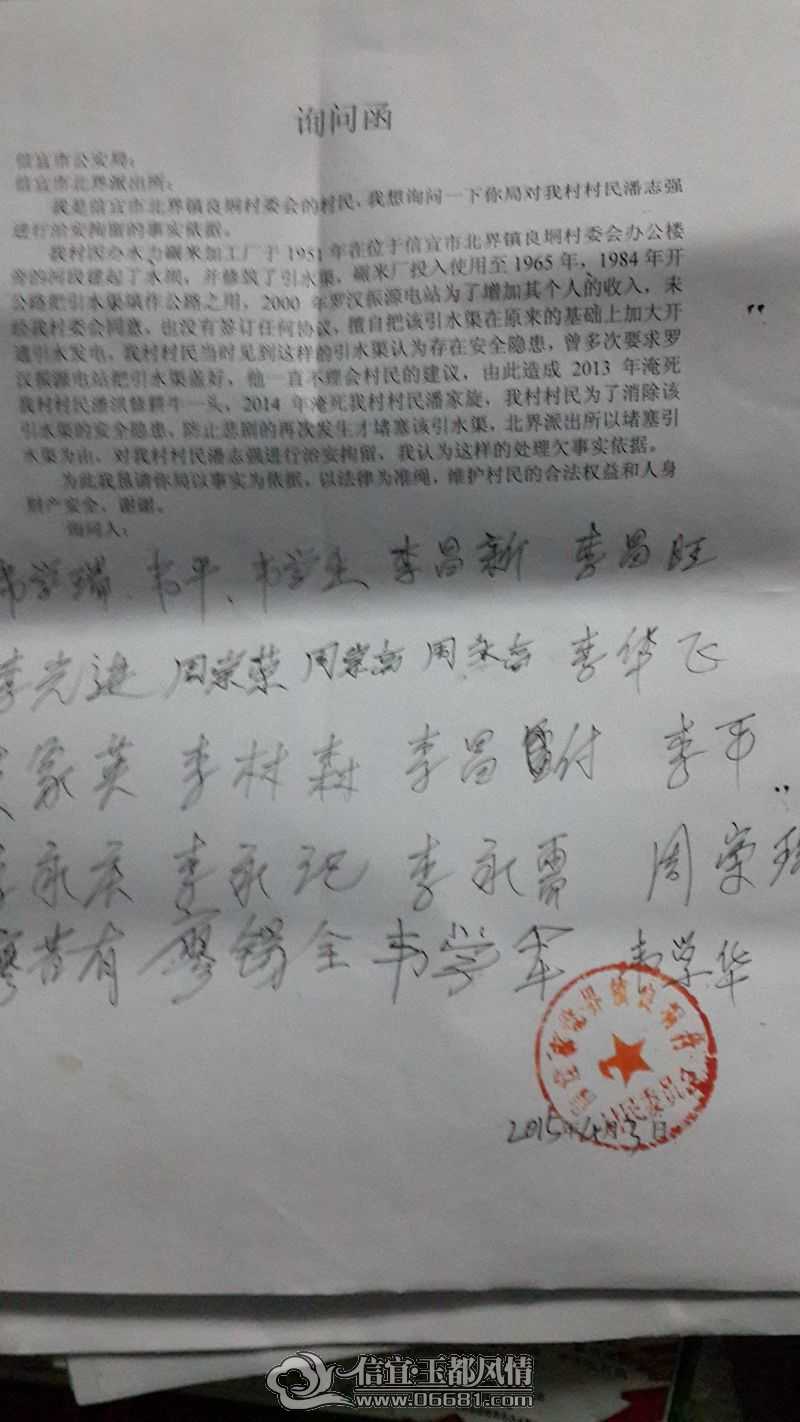 询问函
信宜市公安局：
信宜市北界派出所：
我是信宜市北界镇良垌村委会的村民，我想询问一下你局对我村村民潘志强
进行治安拘留的事实依据。
我村因办水力碾米加工厂于1951年在位于信宜市北界镇良垌村委会办公楼
旁的河段建起了水坝，并修筑了引水渠，碾米厂投入使用至1965年，1984年开
公路把引水渠填作公路之用，2000年罗汉振源电站为了增加其个人的收入，未
经我村委会同意，也没有签订任何协议，擅自把该引水渠在原来的基础上加大开
通引水发电，我村村民当时见到这样的引水渠认为存在安全隐患，曾多次要求罗
汉振源电站把引水渠盖好，他一直不理会村民的建议，由此造成2013年淹死
我村村民潘洪修耕牛一头，2014年淹死我村村民潘家旋，我村村民为了消除该
引水渠的安全隐患，防止悲剧的再次发生才堵塞该引水渠，北界派出所以堵塞引
水渠为由，对我村村民潘志强进行治安拘留，我认为这样的处理欠事实依据。
为此我恳请你局以事实为依据，以法律为准绳，维护村民的合法权益和人身
财产安全，谢谢。
询问人：
韦学瑞、韦平、韦学生 李昌新 李昌旺
李光进 周荣 周 周 李华飞
家英 李林森 李昌付 李平
李永庆 李永记 李永 周荣
廖昔有 廖锡全 韦学军 韦学华
信宜市北界镇良垌村
村民委员会
2015年4月3日
信宜·玉都风情
www.06681.com